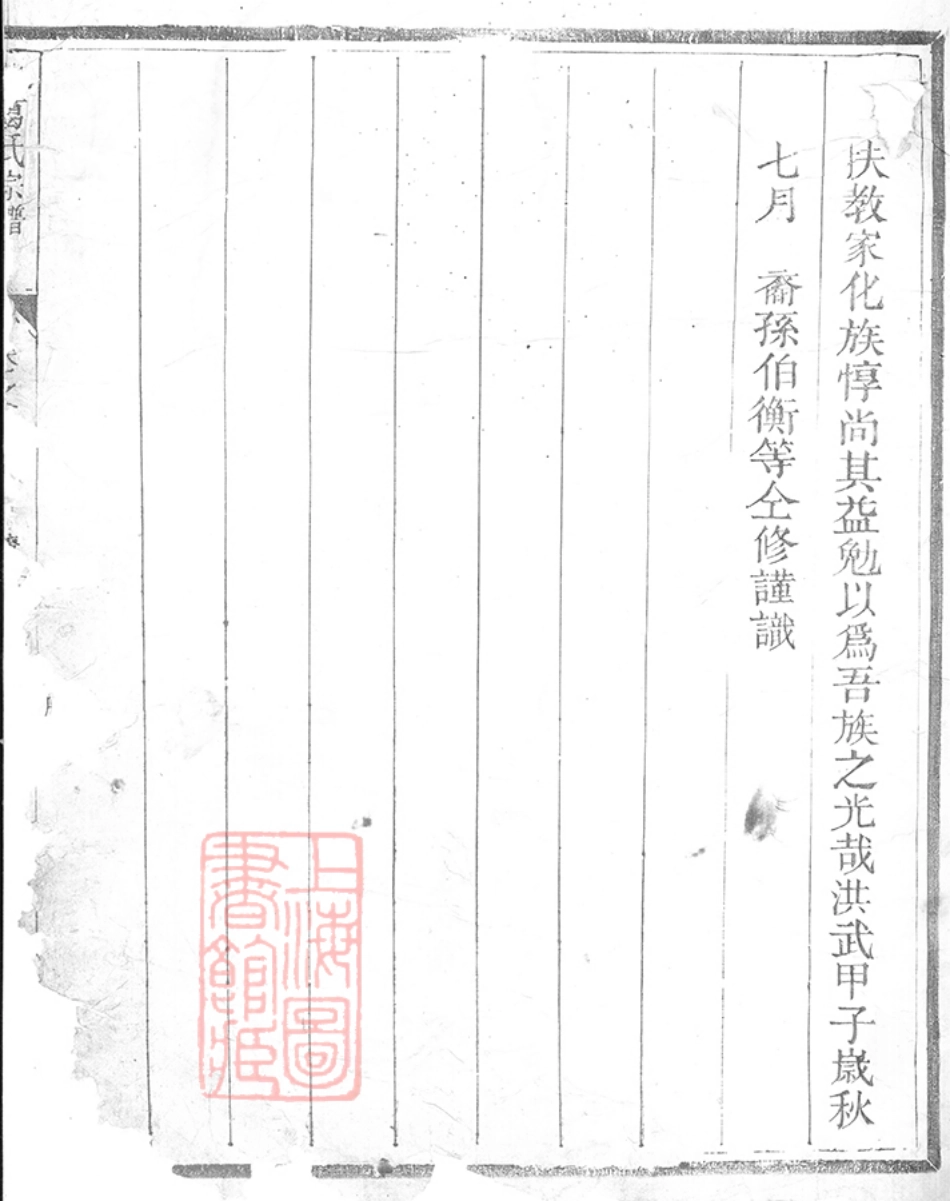 扶教家化族惇尚其益勉以爲吾族之光哉洪武甲子歲秋
七月　裔孫伯衡等仝修謹識
葛氏宗譜
上海圖
書館藏